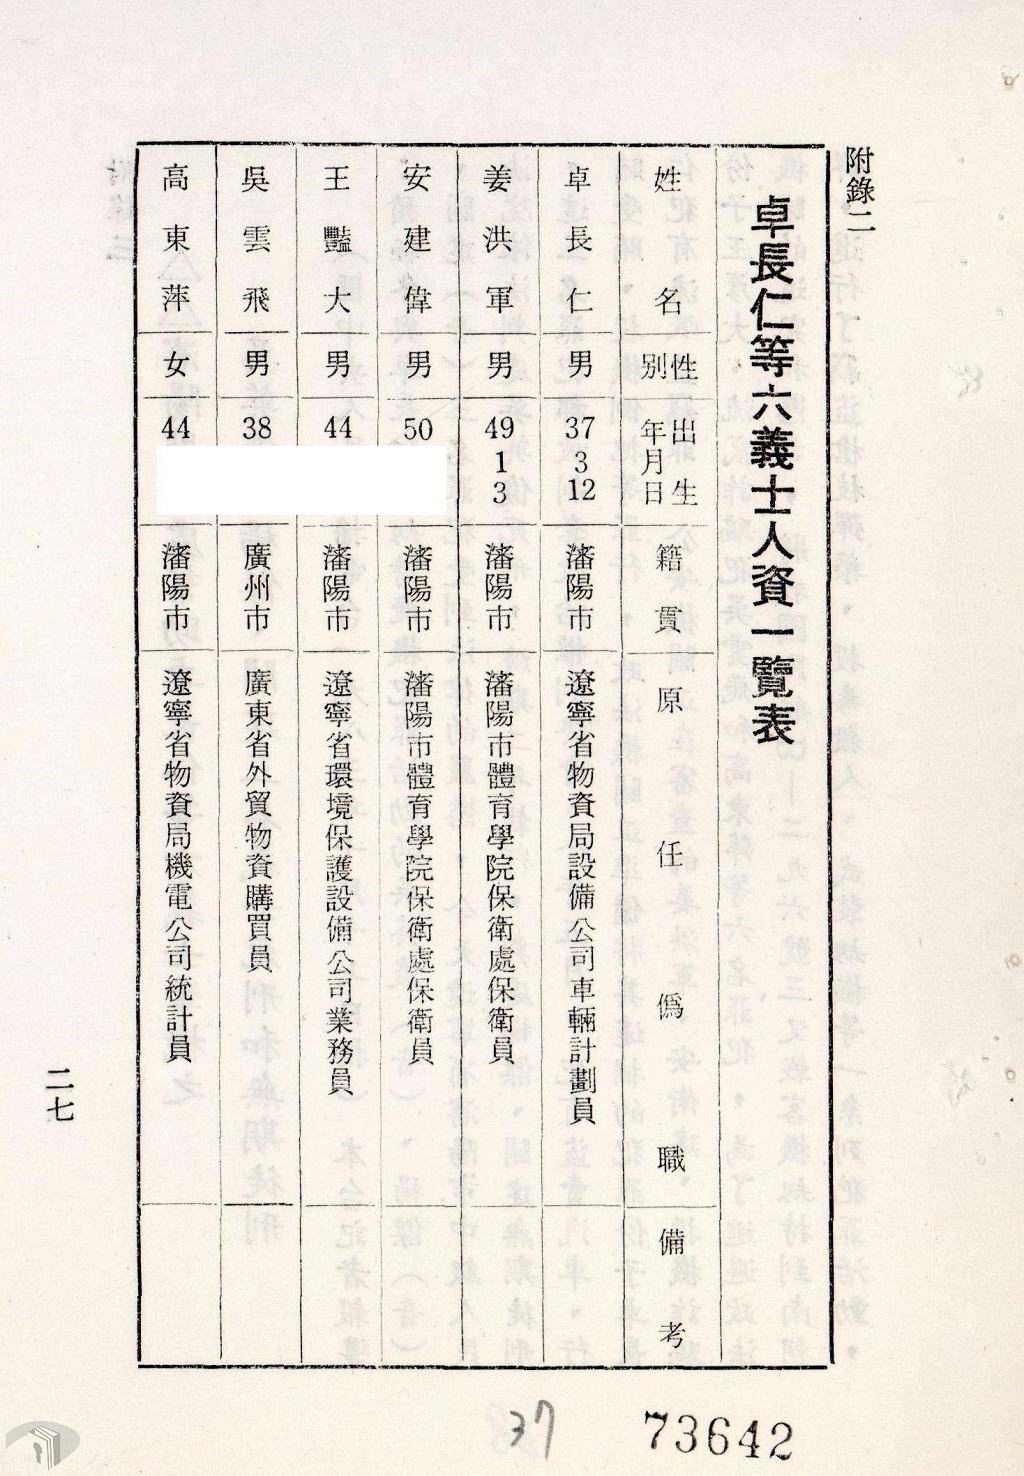 附錄二
卓長仁等六義士人資一覽表
姓名 性別 出生年月日 籍貫 原任偽職 備考
卓長仁 男 37 3 12 瀋陽市 遼寧省物資局設備公司車輛計劃員
姜洪軍 男 49 1 3 瀋陽市 瀋陽市體育學院保衛處保衛員
安建偉 男 50 瀋陽市 瀋陽市體育學院保衛處保衛員
王豔大 男 44 瀋陽市 遼寧省環境保護設備公司業務員
吳雲飛 男 38 廣州市 廣東省外貿物資購買員
高東萍 女 44 瀋陽市 遼寧省物資局機電公司統計員
二七
37
73642